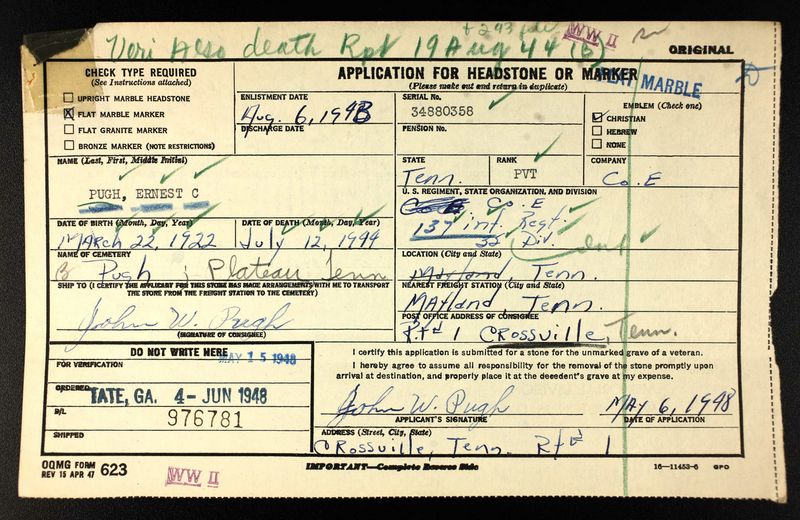 Veri Also death Rpt 19 Aug 44 (B)
WW II
ORIGINAL
CHECK TYPE REQUIRED
(See Instructions attached)
UPRIGHT MARBLE HEADSTONE
X FLAT MARBLE MARKER
FLAT GRANITE MARKER
BRONZE MARKER (NOTE RESTRICTIONS)
APPLICATION FOR HEADSTONE OR MARKER
(Please make out and return in duplicate)
FLAT MARBLE
ENLISTMENT DATE
Aug. 6, 1943
DISCHARGE DATE
SERIAL No.
34880358
PENSION No.
EMBLEM (Check one)
CHRISTIAN
HEBREW
NONE
NAME (Last, First, Middle Initial)
PUGH, ERNEST C
STATE
Tenn.
RANK
PVT
COMPANY
Co. E
U. S. REGIMENT, STATE ORGANIZATION, AND DIVISION
Co. E
137 inf. Regt.
35 Div.
DATE OF BIRTH (Month, Day, Year)
MARCH 22, 1922
DATE OF DEATH (Month, Day, Year)
July 12, 1944
NAME OF CEMETERY
Pugh ; Plateau Tenn
LOCATION (City and State)
Mayland, Tenn.
SHIP TO (I CERTIFY THE APPLICANT FOR THIS STONE HAS MADE ARRANGEMENTS WITH ME TO TRANSPORT THE STONE FROM THE FREIGHT STATION TO THE CEMETERY)
John W. Pugh
(SIGNATURE OF CONSIGNEE)
NEAREST FREIGHT STATION (City and State)
MAYland Tenn.
POST OFFICE ADDRESS OF CONSIGNEE
Rtd 1 CROSSVille, Tenn.
DO NOT WRITE HERE
FOR VERIFICATION
MAY 15 1948
ORDERED
TATE, GA. 4-JUN 1948
B/L
976781
SHIPPED
I certify this application is submitted for a stone for the unmarked grave of a veteran.
I hereby agree to assume all responsibility for the removal of the stone promptly upon arrival at destination, and properly place it at the decedent's grave at my expense.
John W. Pugh
MAY 6, 1948
APPLICANT'S SIGNATURE
DATE OF APPLICATION
ADDRESS (Street, City, State)
CROSSVille, Tenn. Rtd 1
OQMG FORM
REV 15 APR 47
623
WW II
IMPORTANT—Complete Reverse Side
16—11453-6 GPO